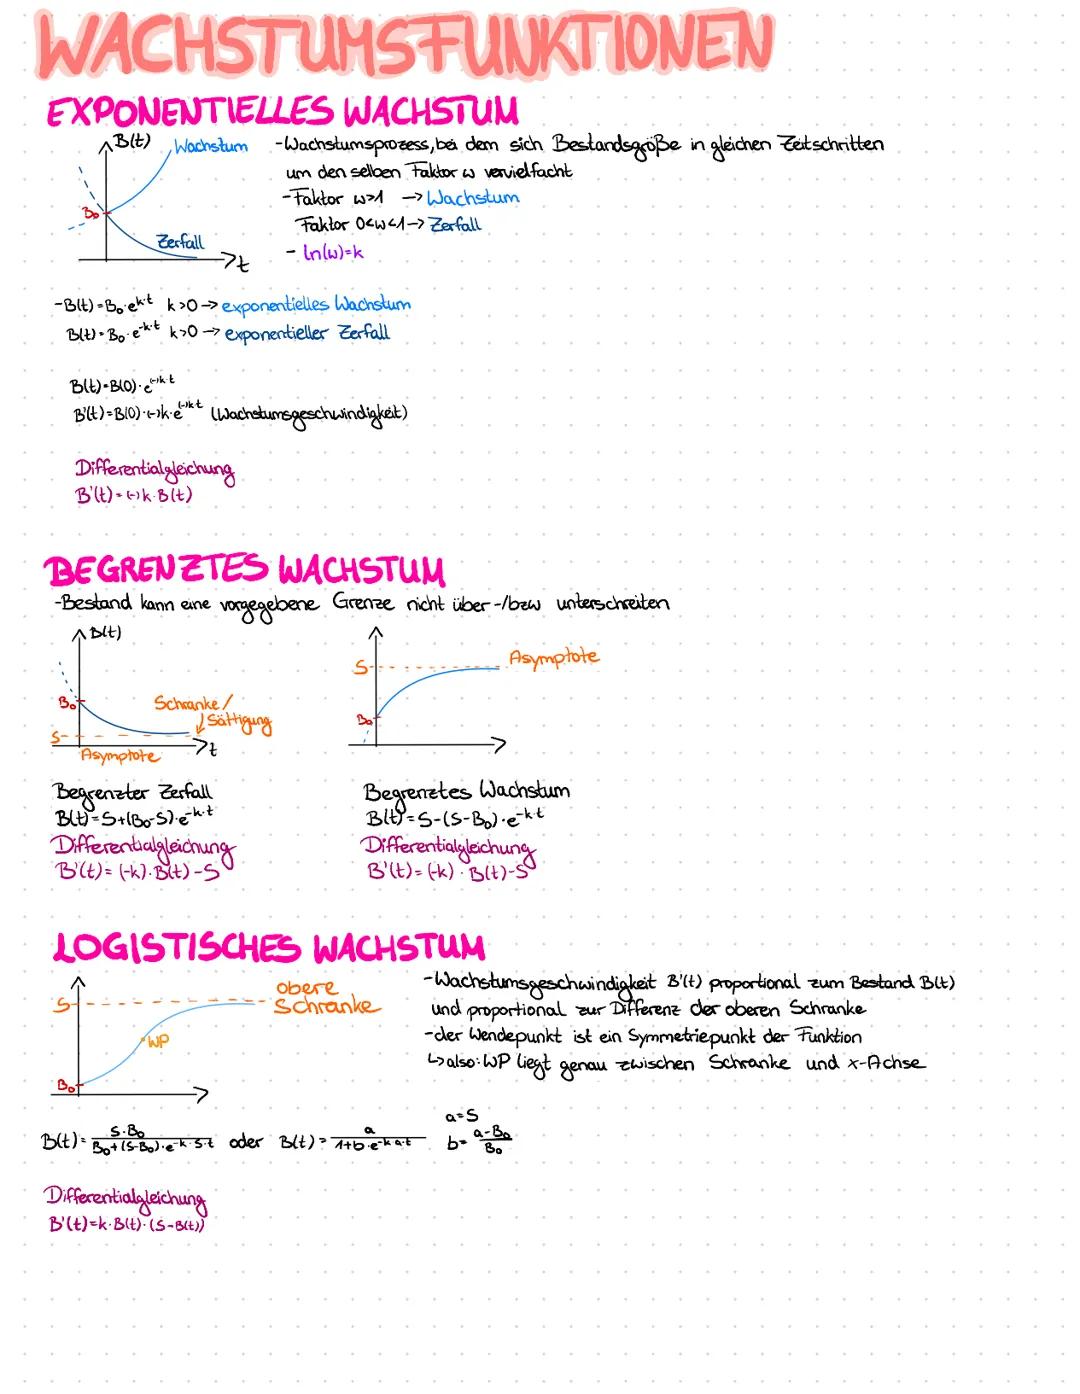 WACHSTUMSFUNKTIONEN
EXPONENTIELLES WACHSTUM
B(t)
Wachstum
B₀
Zerfall
t
-Wachstumsprozess, bei dem sich Bestandsgröße in gleichen Zeitschritten
um den selben Faktor w vervielfacht
-Faktor w>1 → Wachstum
Faktor 0<w<1 → Zerfall
- ln(w)=k
-B(t)=B₀·e^k·t k>0 → exponentielles Wachstum
B(t)=B₀·e^-k·t k>0 → exponentieller Zerfall
B(t)=B(0)·e^(-)k·t
B'(t)=B(0)·(-)k·e^(-)k·t (Wachstumsgeschwindigkeit)
Differentialgleichung
B'(t)=(-)k·B(t)
BEGRENZTES WACHSTUM
-Bestand kann eine vorgegebene Grenze nicht über-/bzw unterschreiten
B(t)
B₀
S
Schranke/
Sättigung
Asymptote
t
S
Asymptote
B₀
Begrenzter Zerfall
B(t)=S+(B₀-S)·e^-k·t
Differentialgleichung
B'(t)=(-k)·B(t)-S
Begrenztes Wachstum
B(t)=S-(S-B₀)·e^-k·t
Differentialgleichung
B'(t)=(-k)·B(t)-S
LOGISTISCHES WACHSTUM
S
obere
Schranke
WP
B₀
-Wachstumsgeschwindigkeit B'(t) proportional zum Bestand B(t)
und proportional zur Differenz der oberen Schranke
-der Wendepunkt ist ein Symmetriepunkt der Funktion
↳also: WP liegt genau zwischen Schranke und x-Achse
B(t)= S·B₀ / B₀+(S-B₀)·e^-k·S·t oder B(t)= a / 1+b·e^-k·a·t
a=S
b= a-B₀ / B₀
Differentialgleichung
B'(t)=k·B(t)·(S-B(t))